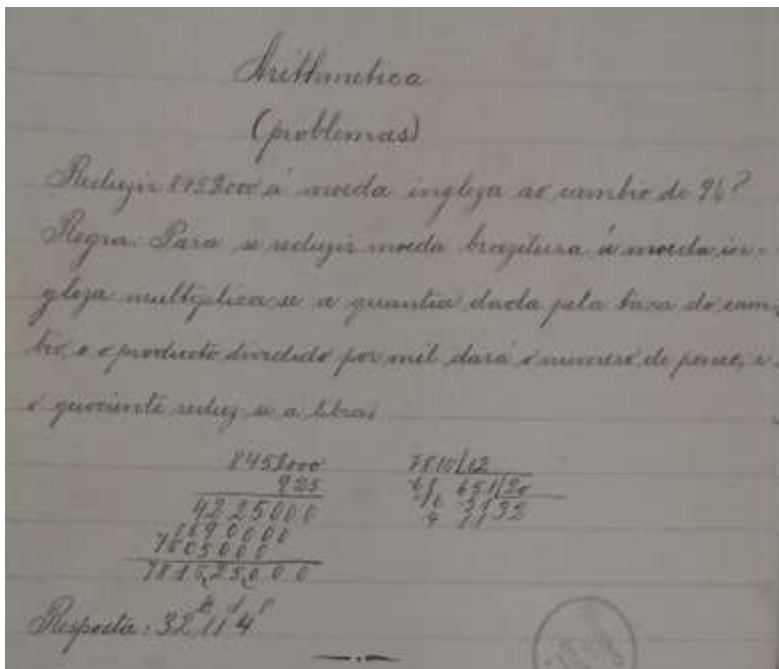 Arithmetica
(problemas)
Reduzir 845$000 á moeda ingleza ao cambio de 9¼?
Regra. Para se reduzir moeda brazileira á moeda in-
gleza multiplica-se a quantia dada pela taxa do cam-
bio, e o producto dividido por mil dará o numero de pence, e
o quociente reduz-se a libras
845$000 7810/12
925 61 651/20
4225000 10 51 32
1690000 4 11
7605000
781625000
Resposta: 32 11 4